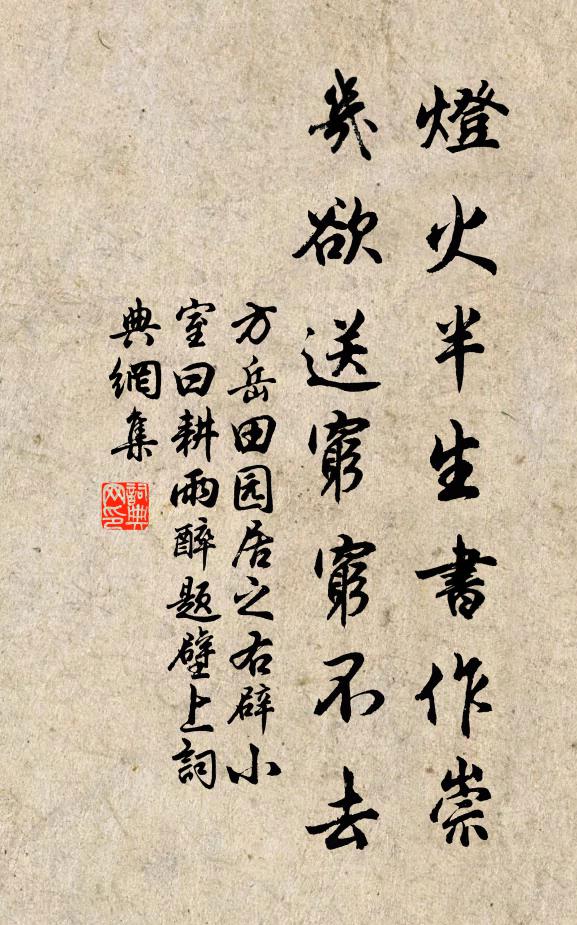 燈火半生書作崇
幾欲送窮窮不去
方岳田园居之右辟小
室曰耕雨醉题壁上詞
典網集
詞典
网印